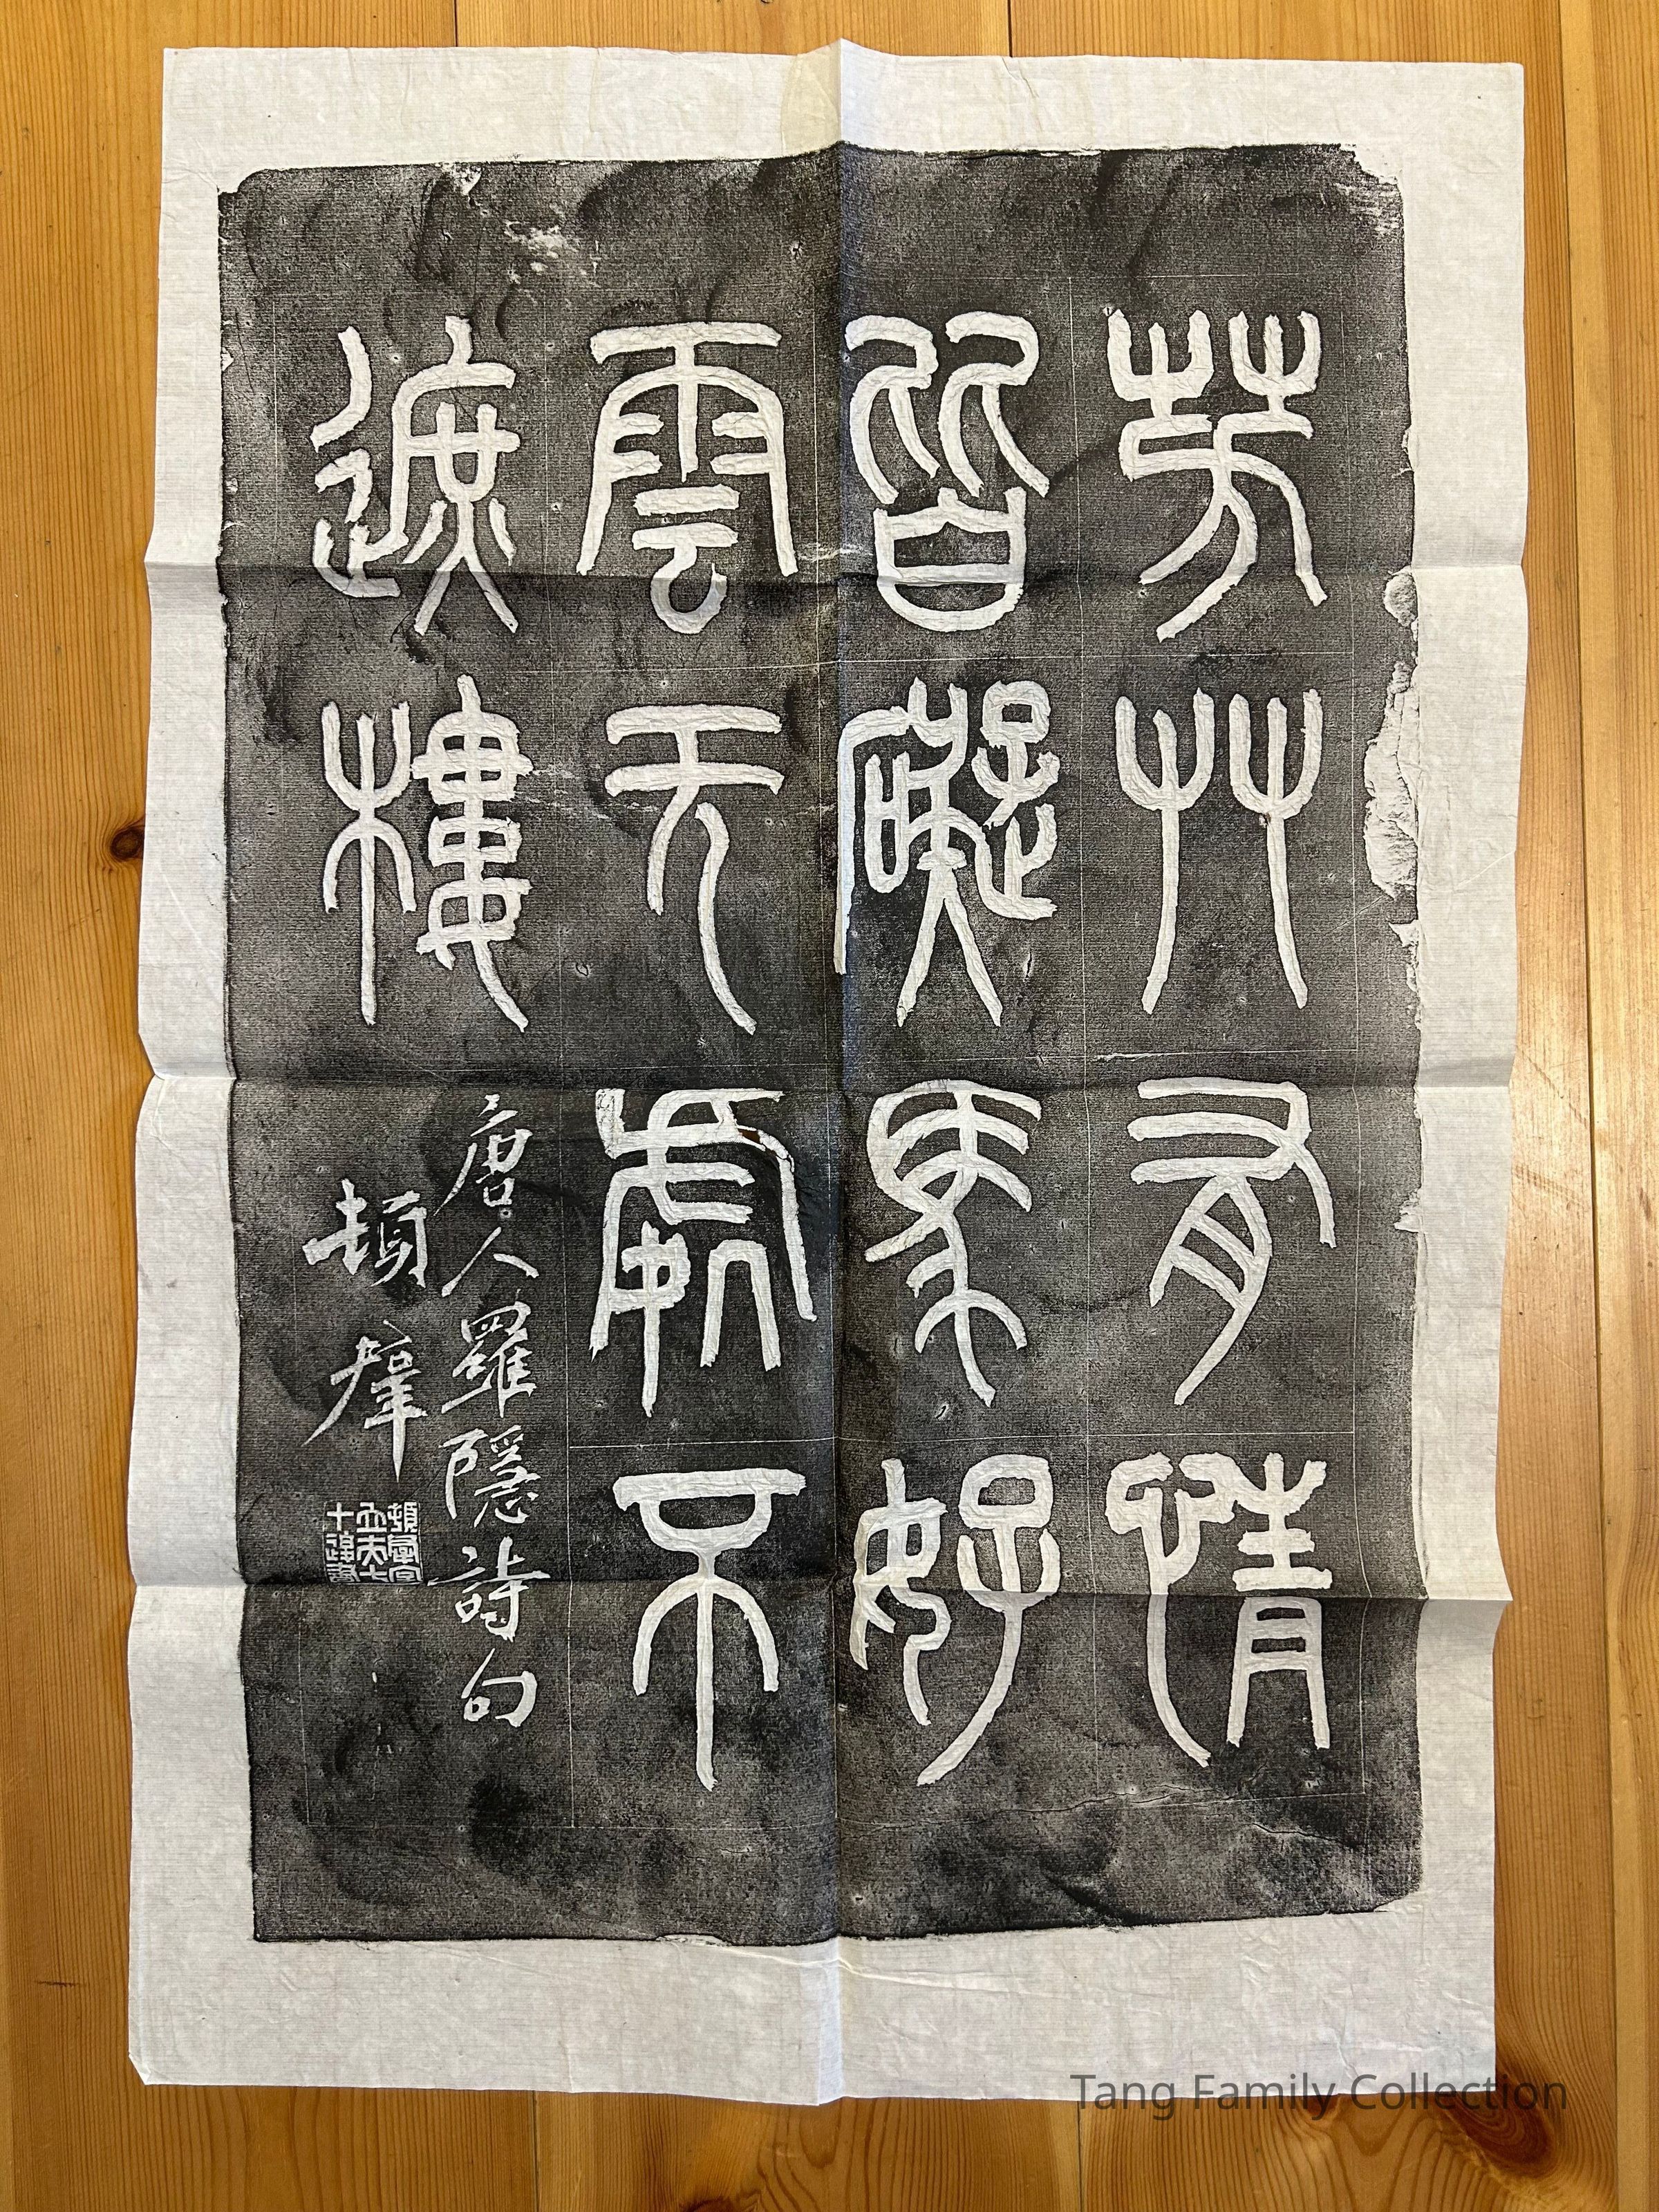 芳艸有情
皆礙馬好
雲无處不
遮樓
唐人羅隱詩句
頓羣
Tang Family Collection